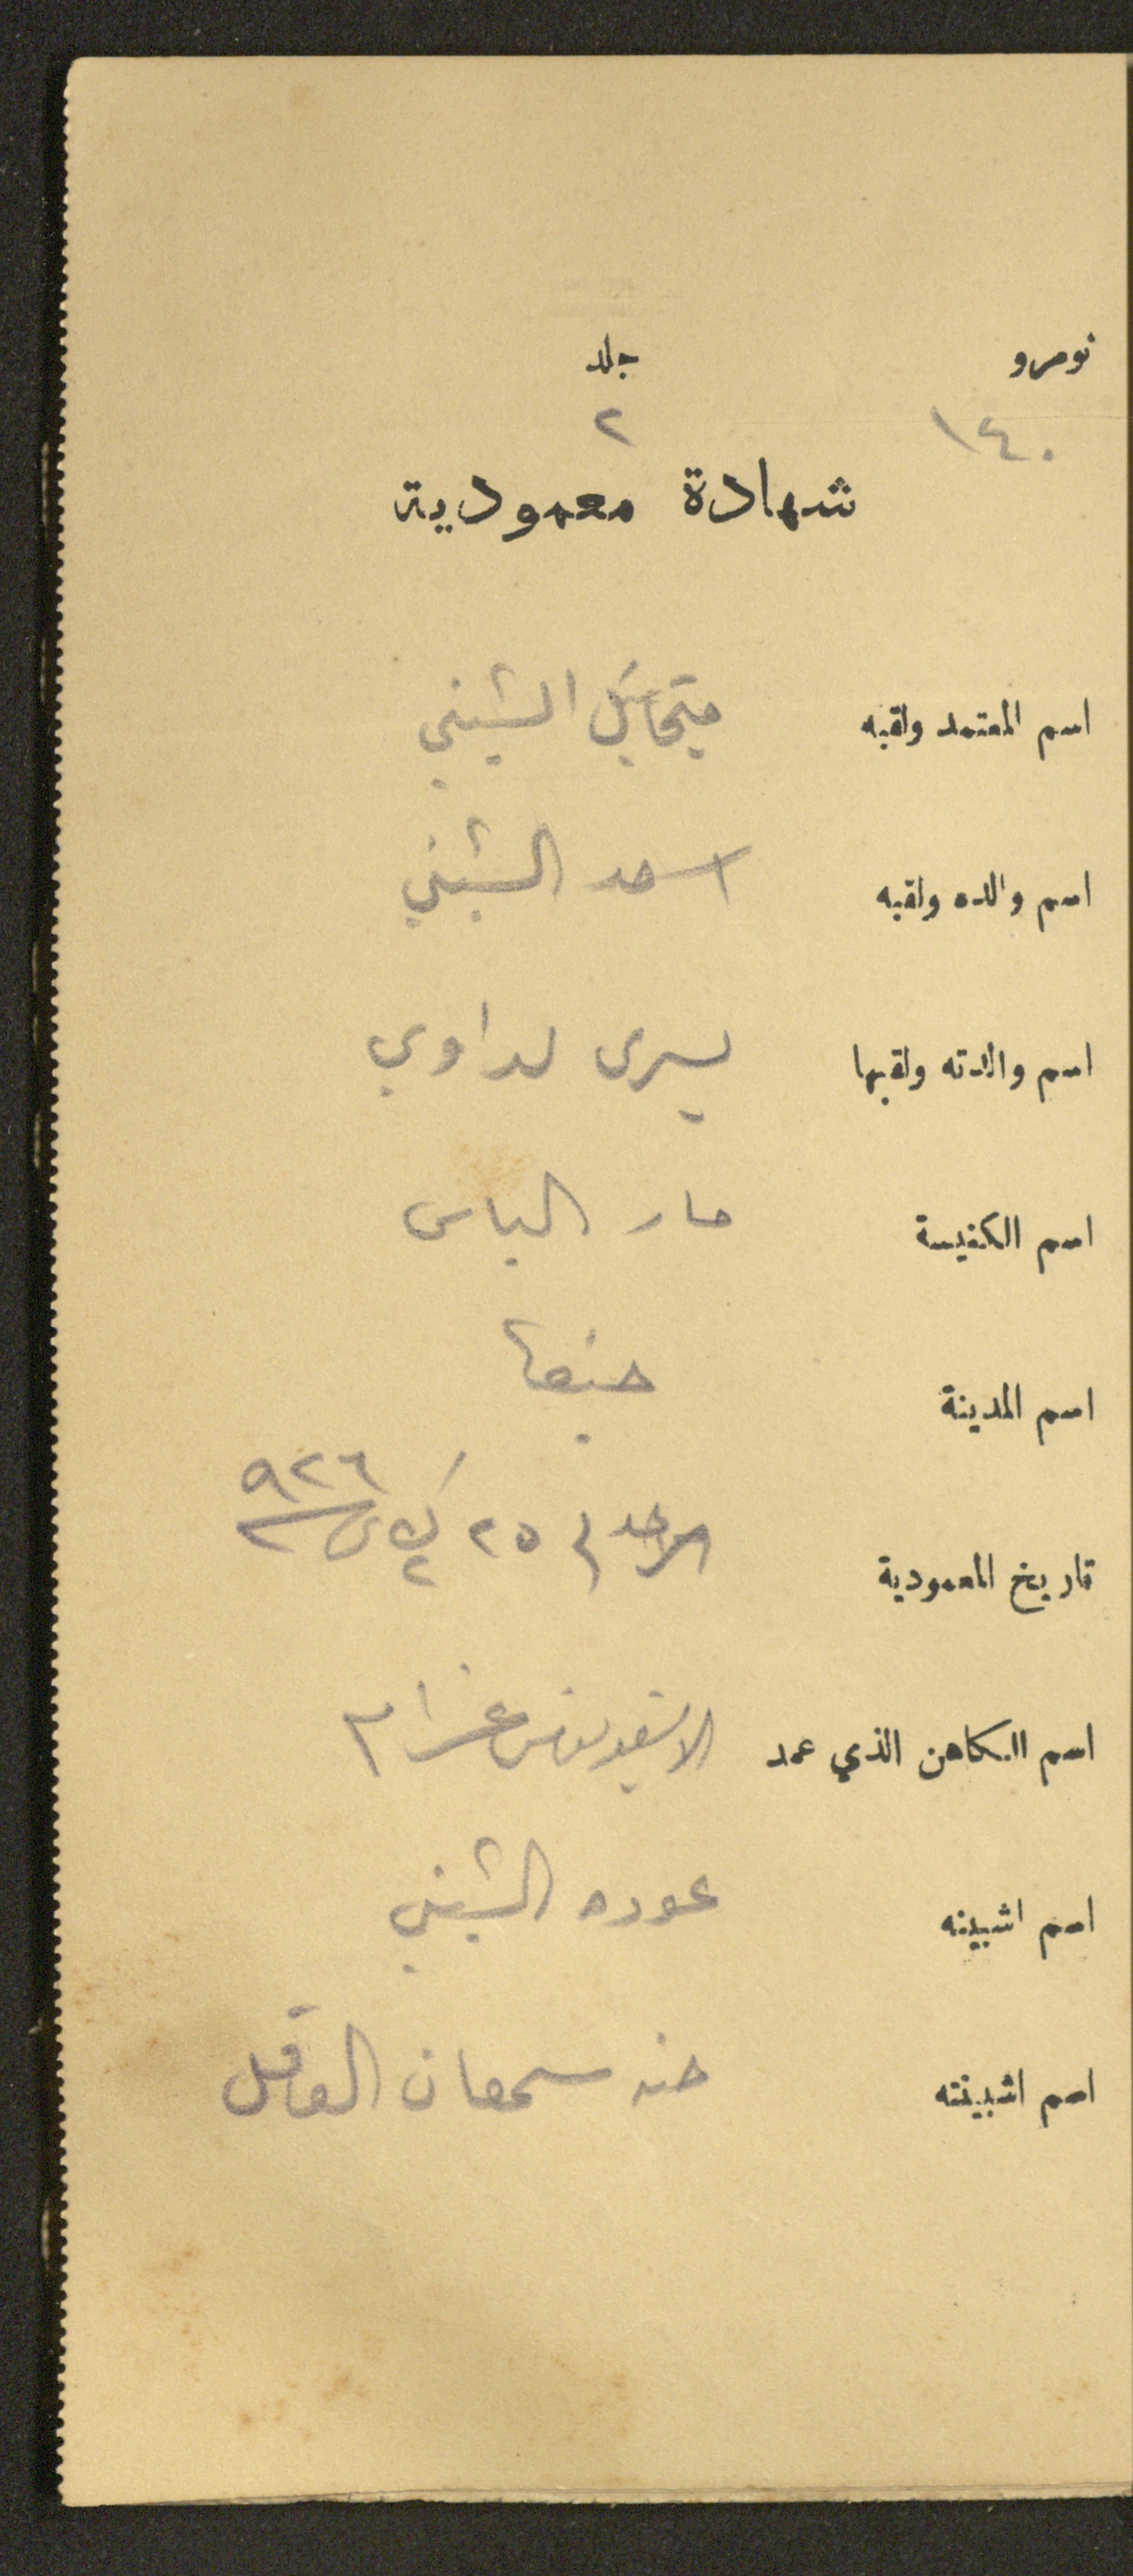 نومرو جلد
١٤٠ ٢
شهادة معمودية
اسم المعتمد ولقبه ميخائيل الشيني
اسم والده ولقبه اسعد الشيني
اسم والدته ولقبها يسرى لداوي
اسم الكنيسة مار الياس
اسم المدينة حيفا
تاريخ المعمودية الاحد في ٢٥ ك٢ سنة ٩٢٦
اسم الكاهن الذي عمد
اسم اشبينه عوده الشيني
اسم اشبينته حنه سمعان العاقل